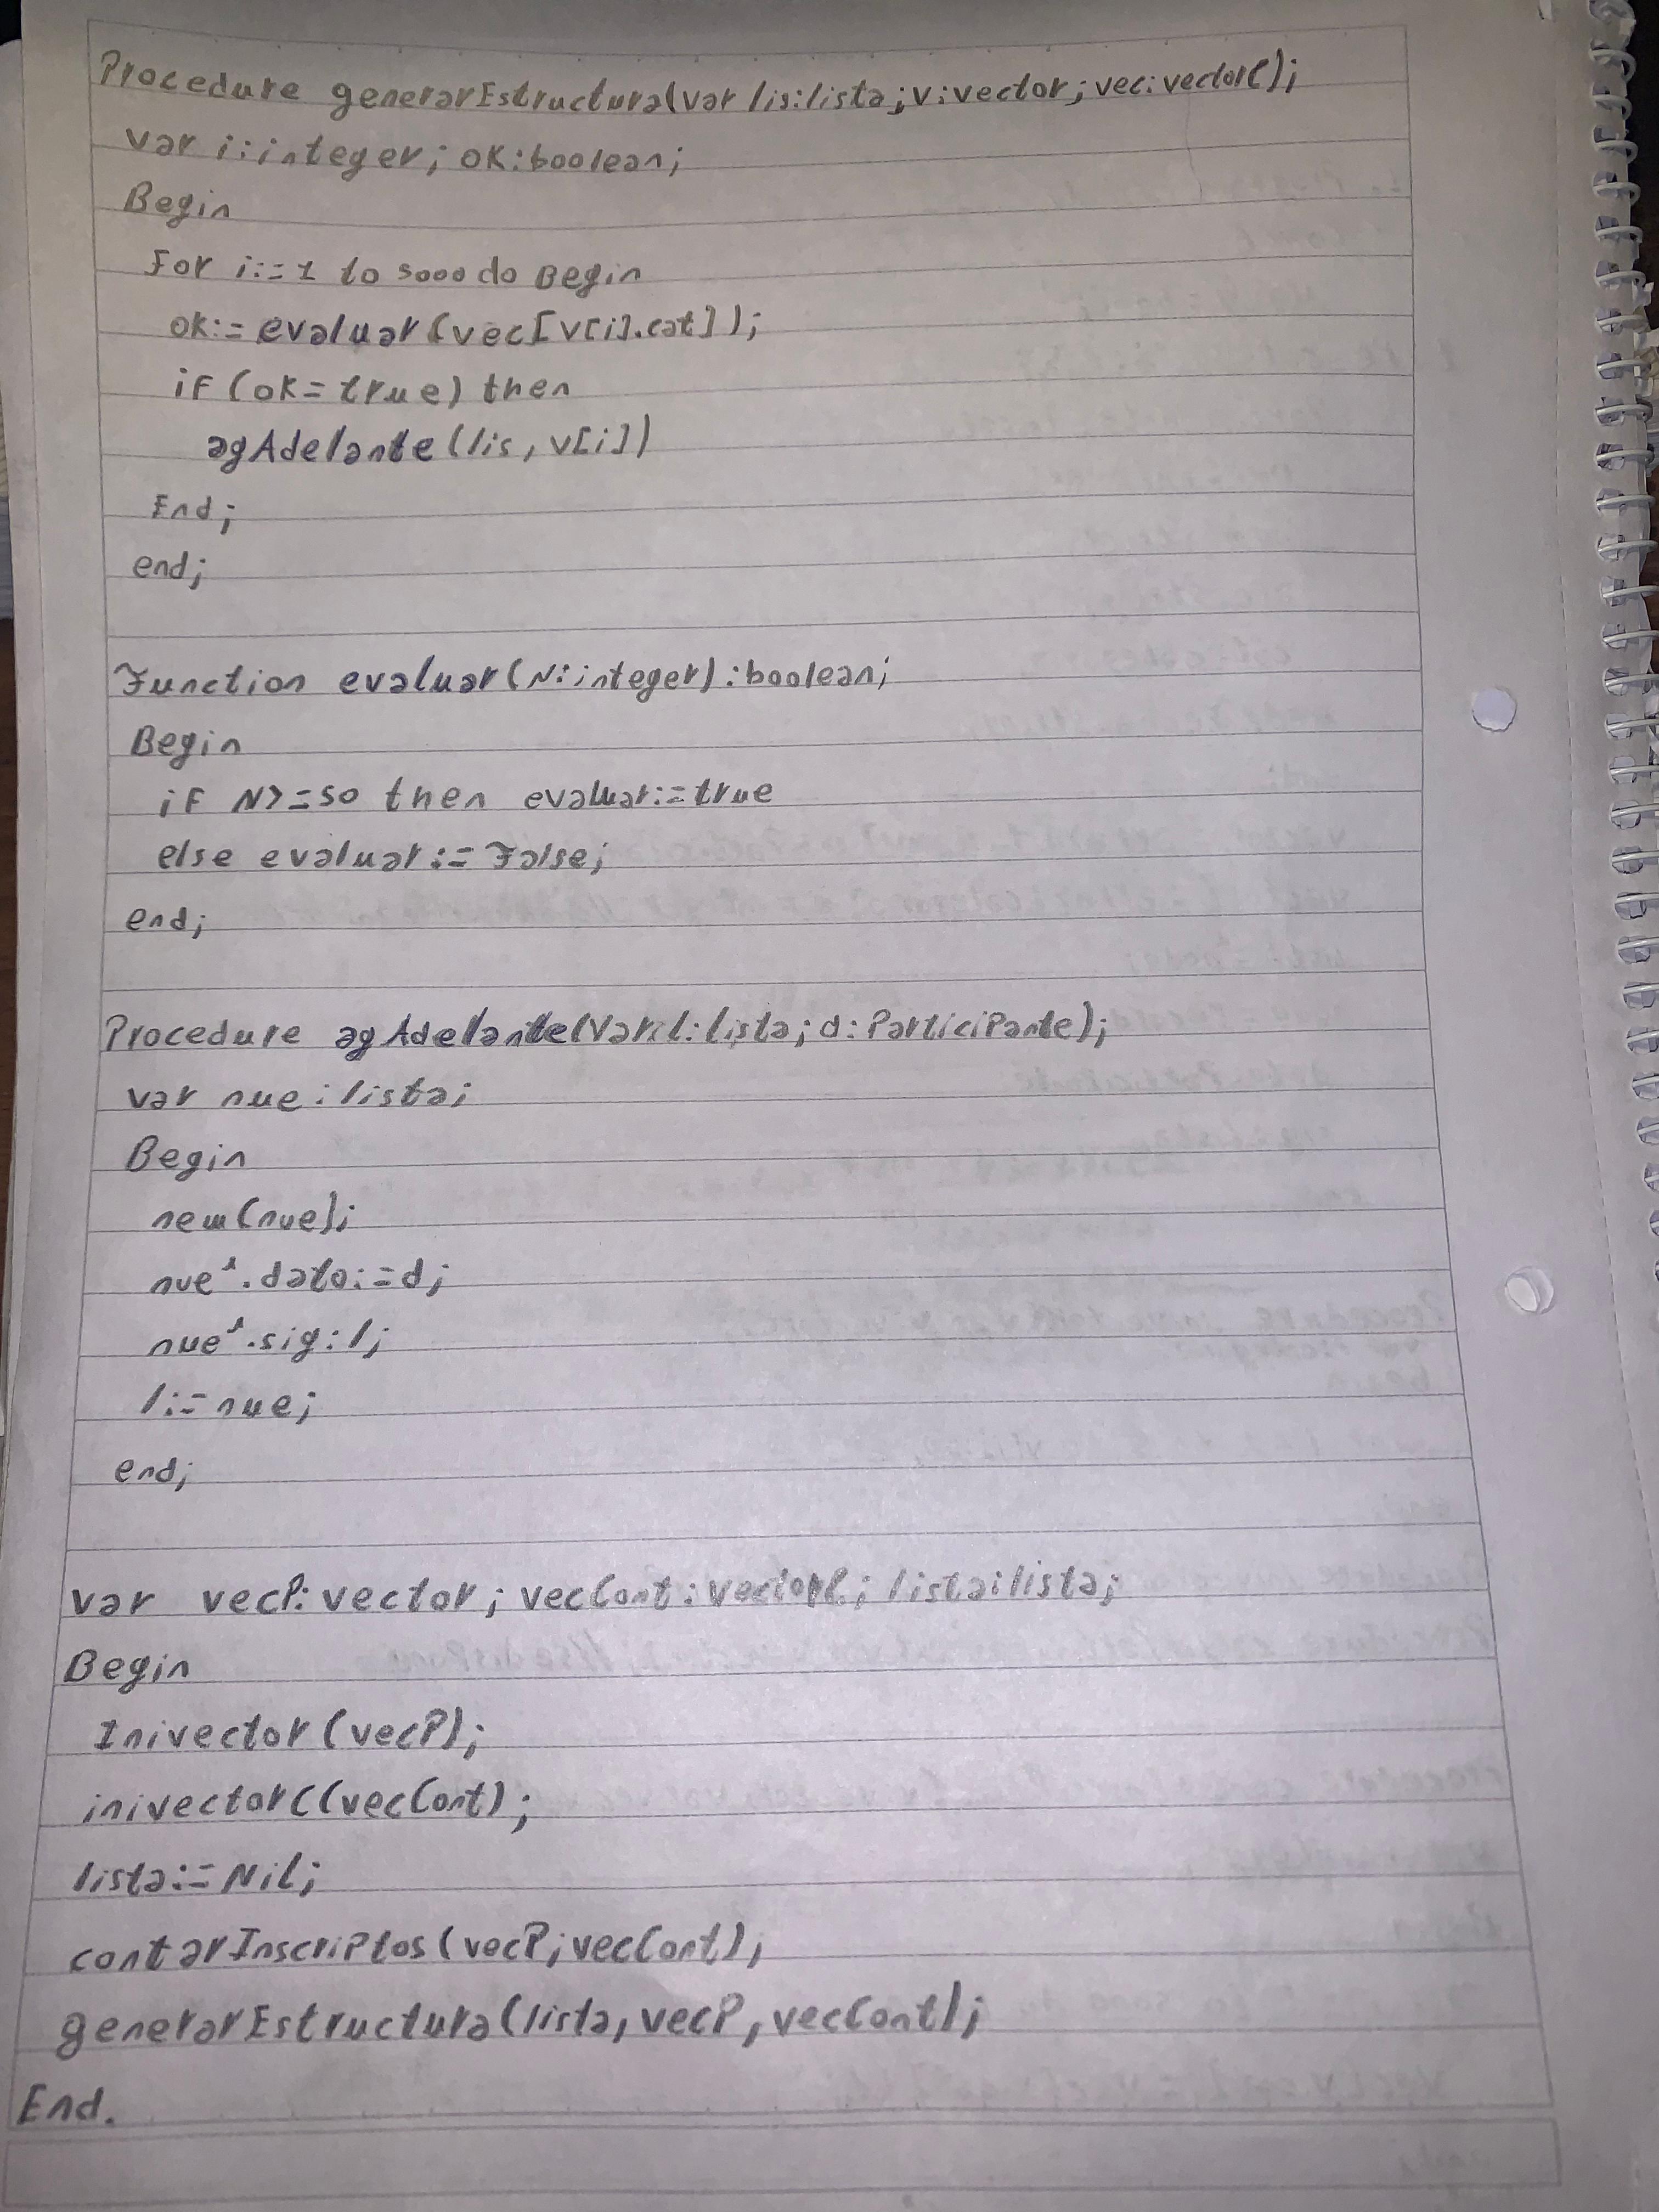 Procedure generarEstructura(var lis:lista;v:vector;vec:vectorC);
var i:integer; ok:boolean;
Begin
For i:=1 to 5000 do Begin
ok:= evaluar(vec[v[i].cat]);
if (ok=true) then
agAdelante(lis, v[i])
End;
end;
Function evaluar(N:integer):boolean;
Begin
if N>=50 then evaluar:=true
else evaluar:=False;
end;
Procedure agAdelante(Var l:lista;d:Participante);
var nue:lista;
Begin
new(nue);
nue^.dato:=d;
nue^.sig:l;
l:=nue;
end;
var vecP:vector; vecCont:vectorC; lista:lista;
Begin
Inivector(vecP);
inivectorC(vecCont);
lista:=Nil;
contarInscriptos(vecP;vecCont);
generarEstructura(lista,vecP,vecCont);
End.